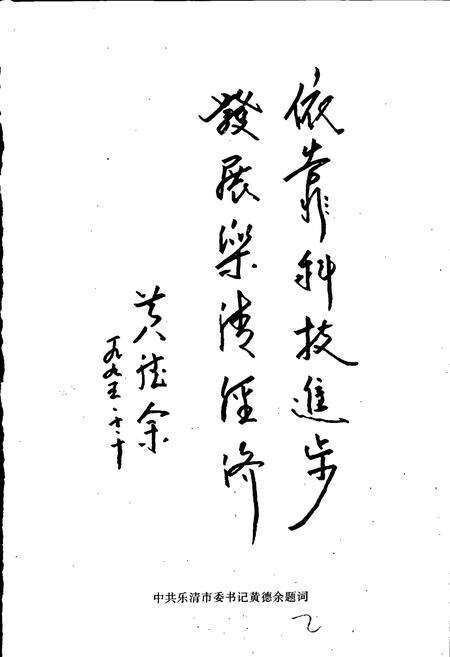 依靠科技進步
發展樂清經济
黄德余
一九九五.十.十
中共乐清市委书记黄德余题词